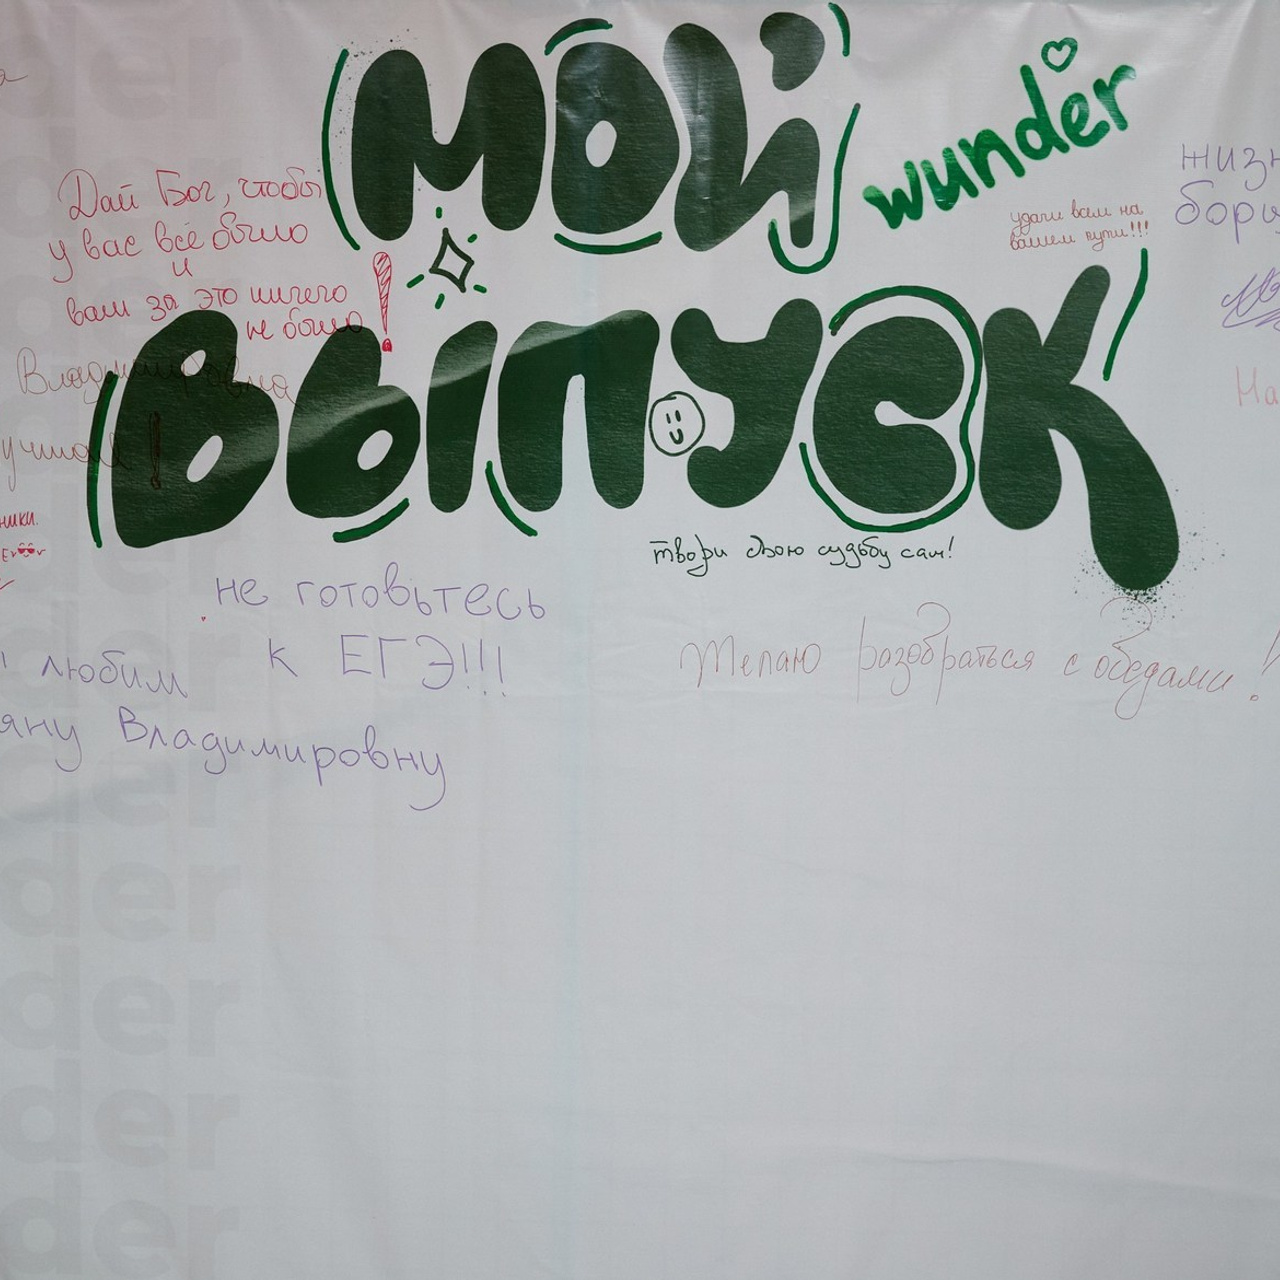 мой
wunder
выпуск
Дай Бог, чтобы
у вас всё было
и
вам за это ничего
не было!
удачи вам на
вашем пути!!!
жизн
Владимировна
На
учили !
ники.
твори свою судьбу сам!
не готовьтесь
к ЕГЭ!!!
любим
яну Владимировну
Желаю разобраться с обедами!
der
der
der
der
der
der
der